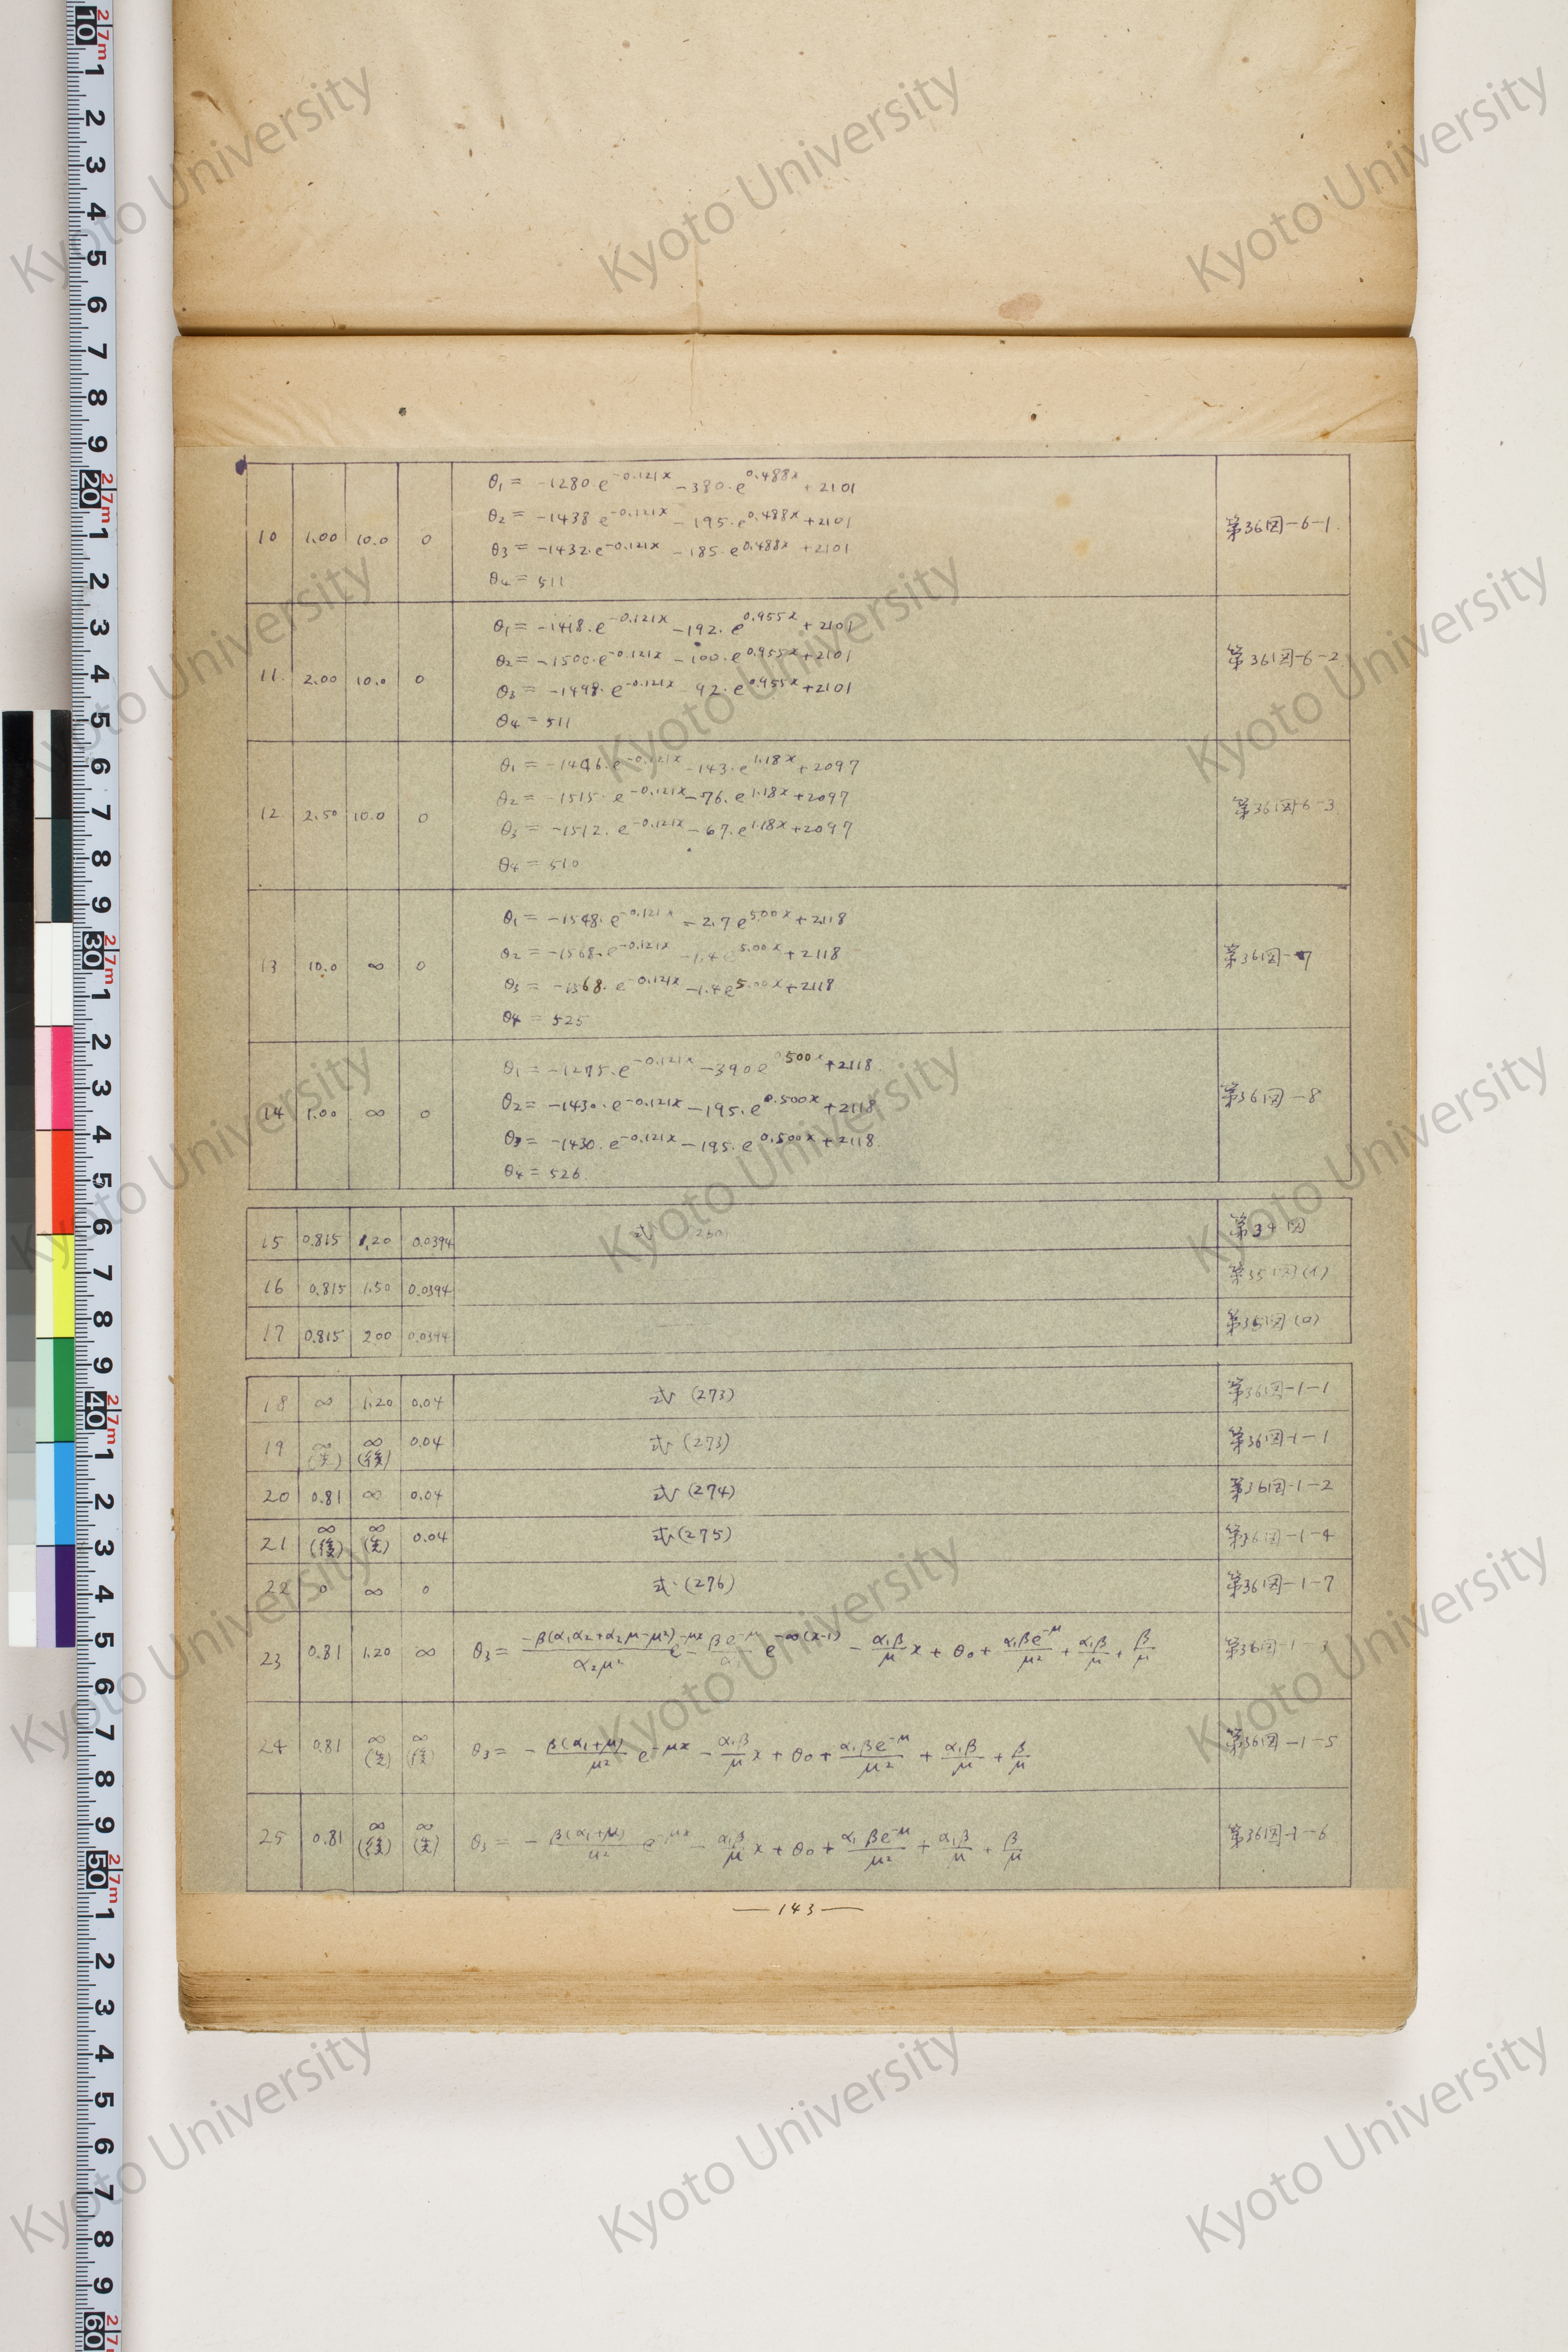 10 1.00 10.0 0 θ₁ = -1280·e^{-0.121x} -380·e^{0.488x} +2101 第36図-6-1
θ₂ = -1438 e^{-0.121x} -195·e^{0.488x} +2101
θ₃ = -1432·e^{-0.121x} -185·e^{0.488x} +2101
θ₄ = 511
11 2.00 10.0 0 θ₁ = -1418·e^{-0.121x} -192·e^{0.955x} +2101 第36図-6-2
θ₂ = -1500·e^{-0.121x} -100·e^{0.955x} +2101
θ₃ = -1498·e^{-0.121x} 92·e^{0.955x} +2101
θ₄ = 511
12 2.50 10.0 0 θ₁ = -1446·e^{-0.121x} -143·e^{1.18x} +2097 第36図6-3
θ₂ = -1515·e^{-0.121x} -76·e^{1.18x} +2097
θ₃ = -1512·e^{-0.121x} -67·e^{1.18x} +2097
θ₄ = 510
13 10.0 ∞ 0 θ₁ = -1548·e^{-0.121x} -2.7 e^{5.00x} +2118 第36図-7
θ₂ = -1568·e^{-0.121x} -1.4 e^{5.00x} +2118
θ₃ = -1568·e^{-0.121x} -1.4 e^{5.00x} +2118
θ₄ = 525
14 1.00 ∞ 0 θ₁ = -1275·e^{-0.121x} -390 e^{0.500x} +2118 第36図-8
θ₂ = -1430·e^{-0.121x} -195·e^{0.500x} +2118
θ₃ = -1430·e^{-0.121x} -195·e^{0.500x} +2118
θ₄ = 526
15 0.815 1.20 0.0394 式 第34図
16 0.815 1.50 0.0394 第35図(イ)
17 0.815 2.00 0.0394 第35図(ロ)
18 ∞ 1.20 0.04 式 (273) 第36図-1-1
19 ∞(先) ∞(後) 0.04 式 (273) 第36図-1-1
20 0.81 ∞ 0.04 式 (274) 第36図-1-2
21 ∞(後) ∞(先) 0.04 式 (275) 第36図-1-4
22 0 ∞ 0 式 (276) 第36図-1-7
23 0.81 1.20 ∞ θ₃ = \frac{-β(α₁α₂+α₂μ-μ²)}{α₂μ²} e^{-μx} - \frac{βe^{-μ}}{α₂} e^{-∞(x-1)} - \frac{α₁β}{μ} x + θ₀ + \frac{α₁βe^{-μ}}{μ²} + \frac{α₁β}{μ} + \frac{β}{μ} 第36図-1-3
24 0.81 ∞(先) ∞(後) θ₃ = - \frac{β(α₁+μ)}{μ²} e^{-μx} - \frac{α₁β}{μ} x + θ₀ + \frac{α₁βe^{-μ}}{μ²} + \frac{α₁β}{μ} + \frac{β}{μ} 第36図-1-5
25 0.81 ∞(後) ∞(先) θ₃ = - \frac{β(α₁+μ)}{μ²} e^{-μx} - \frac{α₁β}{μ} x + θ₀ + \frac{α₁βe^{-μ}}{μ²} + \frac{α₁β}{μ} + \frac{β}{μ} 第36図-1-6
— 143 —
Kyoto University